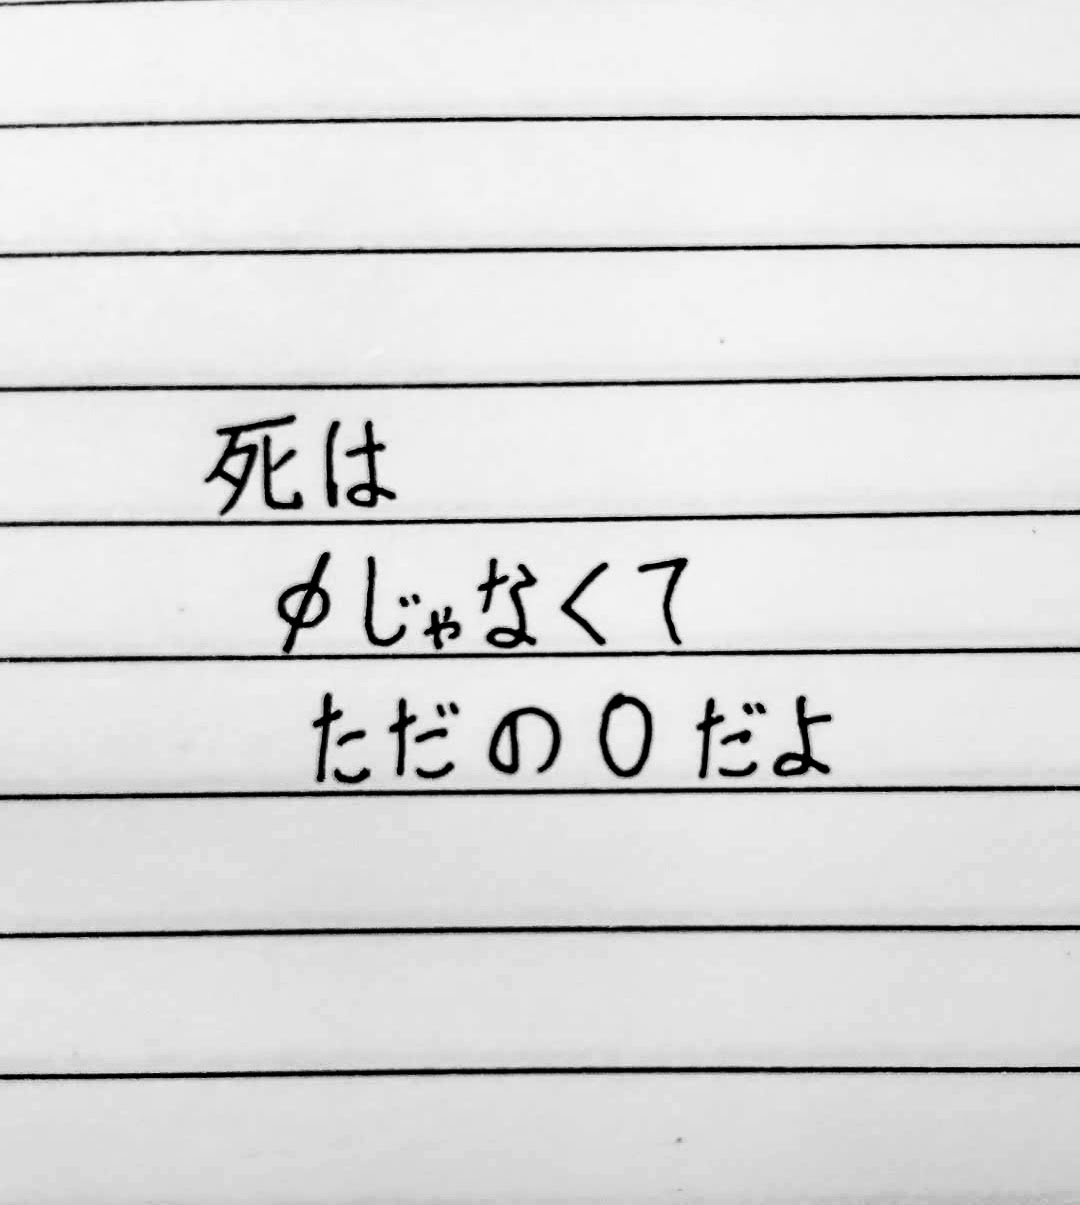 死は
∅じゃなくて
ただの0だよ